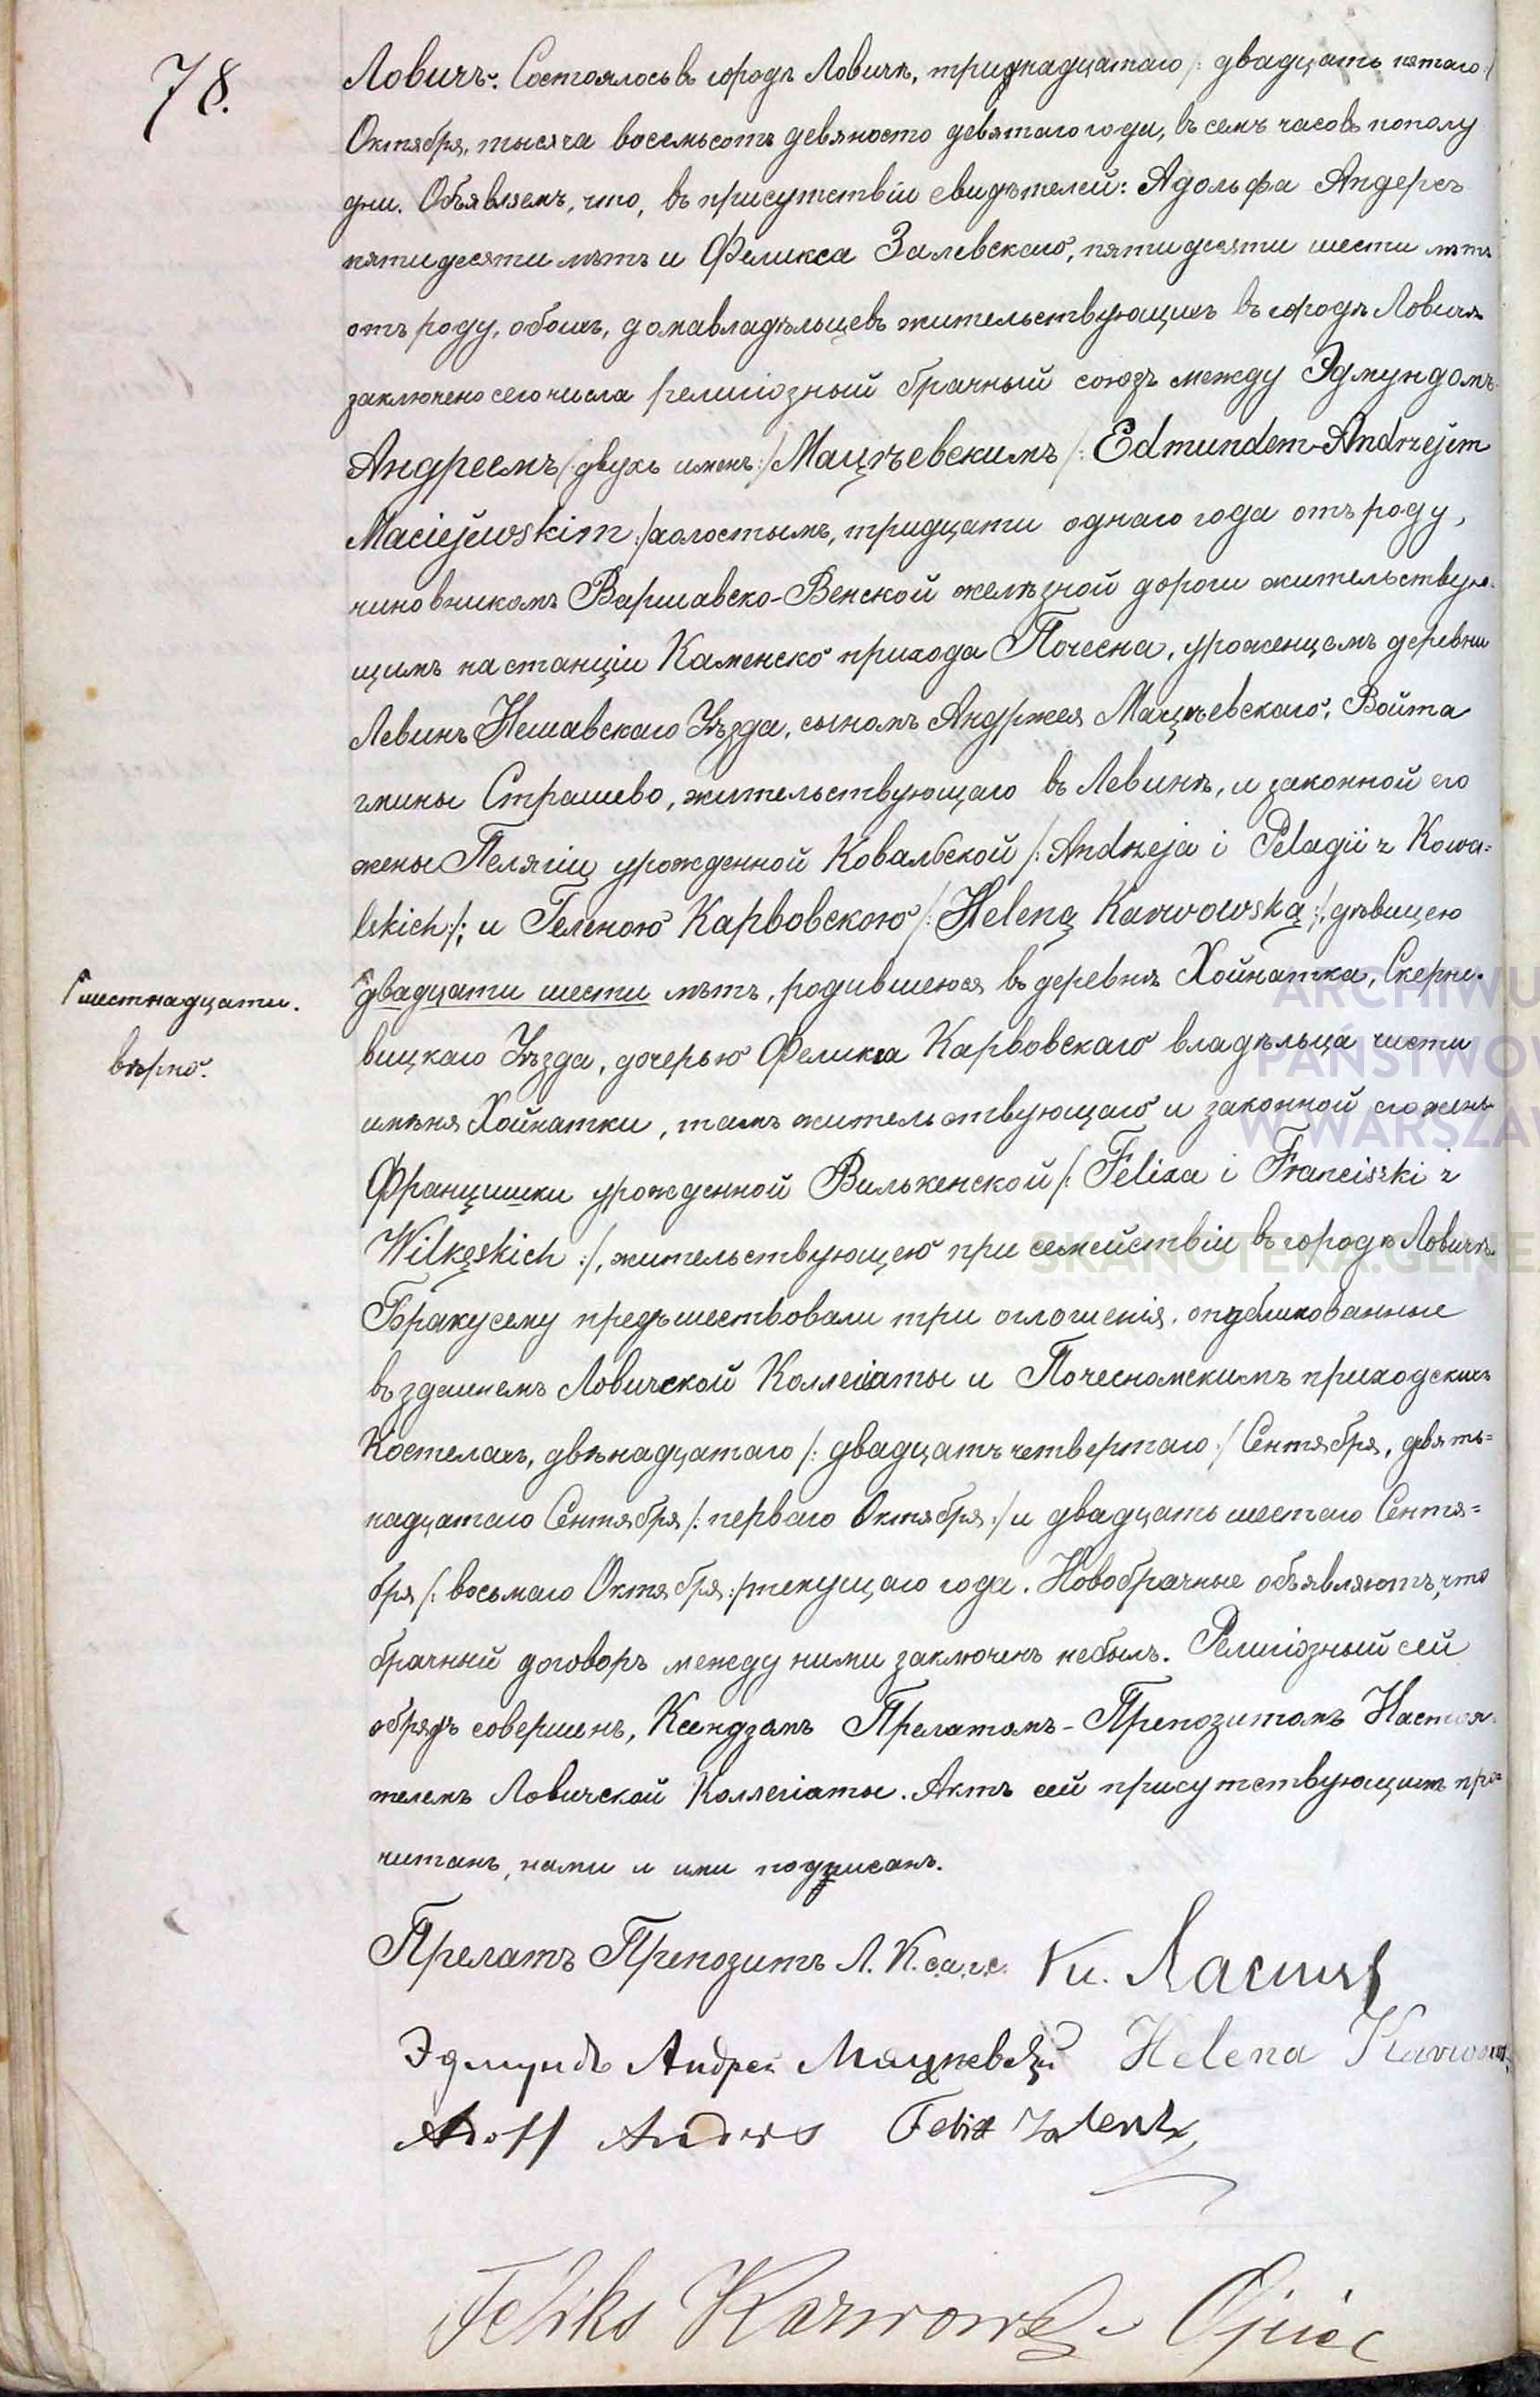 78.
Ловичъ. Состоялось въ городѣ Ловичѣ, тринадцатаго /: двадцать пятаго :/
Октября, тысяча восемьсотъ девяносто девятаго года, въ семь часовъ пополу
дни. Объявляемъ, что, въ присутствіи свидѣтелей: Адольфа Андерсъ
пятидесяти лѣтъ и Феликса Залевскаго, пятидесяти шести лѣтъ
отъ роду, обоихъ, домавладѣльцевъ жительствующихъ въ городѣ Ловичѣ
заключено сего числа религіозный брачный союзъ между Эдмундомъ-
Андреемъ /: двухъ именъ :/ Мацѣевскимъ /: Edmundem-Andrzejem
Maciejewskim :/ холостымъ, тридцати однаго года отъ роду,
чиновникомъ Варшавско-Венской желѣзной дороги жительствую-
щимъ на станціи Каменско прихода Почесна, уроженцемъ деревни
Левинъ Нешавскаго Уѣзда, сыномъ Анджея Мацѣевскаго, Войта
гмины Страшево, жительствующаго въ Левинѣ, и законной его
жены Пелягіи урожденной Ковальской /: Andrzeja i Pelagii z Kowa-
lskich :/; и Геленою Карвовскою /: Heleną Karwowską :/, дѣвицею
Г шестнадцати.
вѣрно.
Г двадцати шести лѣтъ, родившеюся въ деревнѣ Хойнатка, Скерне-
вицкаго Уѣзда, дочерью Феликса Карвовскаго владѣльца части
имѣня Хойнатки, тамъ жительствующаго и законной его жены
Францишки урожденной Вилькенской /: Felixa i Franciszki z
Wilkęskich :/, жительствующею при семействіи въ городѣ Ловичѣ.
Браку сему предъшествовали три оглошенія, опубликованные
въ здешнемъ Ловичской Коллегіаты и Почесномскимъ приходскихъ
Костелахъ, двѣнадцатаго /: двадцать четвертаго :/ Сентября, девять-
надцатаго Сентября /: перваго Октября :/ и двадцать шестаго Сентя-
бря /: восьмаго Октября :/ текущаго года. Новобрачные объявляютъ, что
брачный договоръ между ними заключенъ небылъ. Религіозный сей
обрядъ совершенъ, Ксендзомъ Прелатомъ-Препозитомъ Настоя-
телемъ Ловичской Коллегіаты. Актъ сей присутствующимъ про-
читанъ, нами и ими подписанъ.
Прелатъ Препозитъ Л. К.
Эдмундъ Андрей Мацѣевскій Helena Karwowska
Adolf Anders Felix Zalewski
Feliks Karwowski Ojciec
ARCHIWU
PAŃSTWOW
W WARSZAW
SKANOTEKA.GENEA